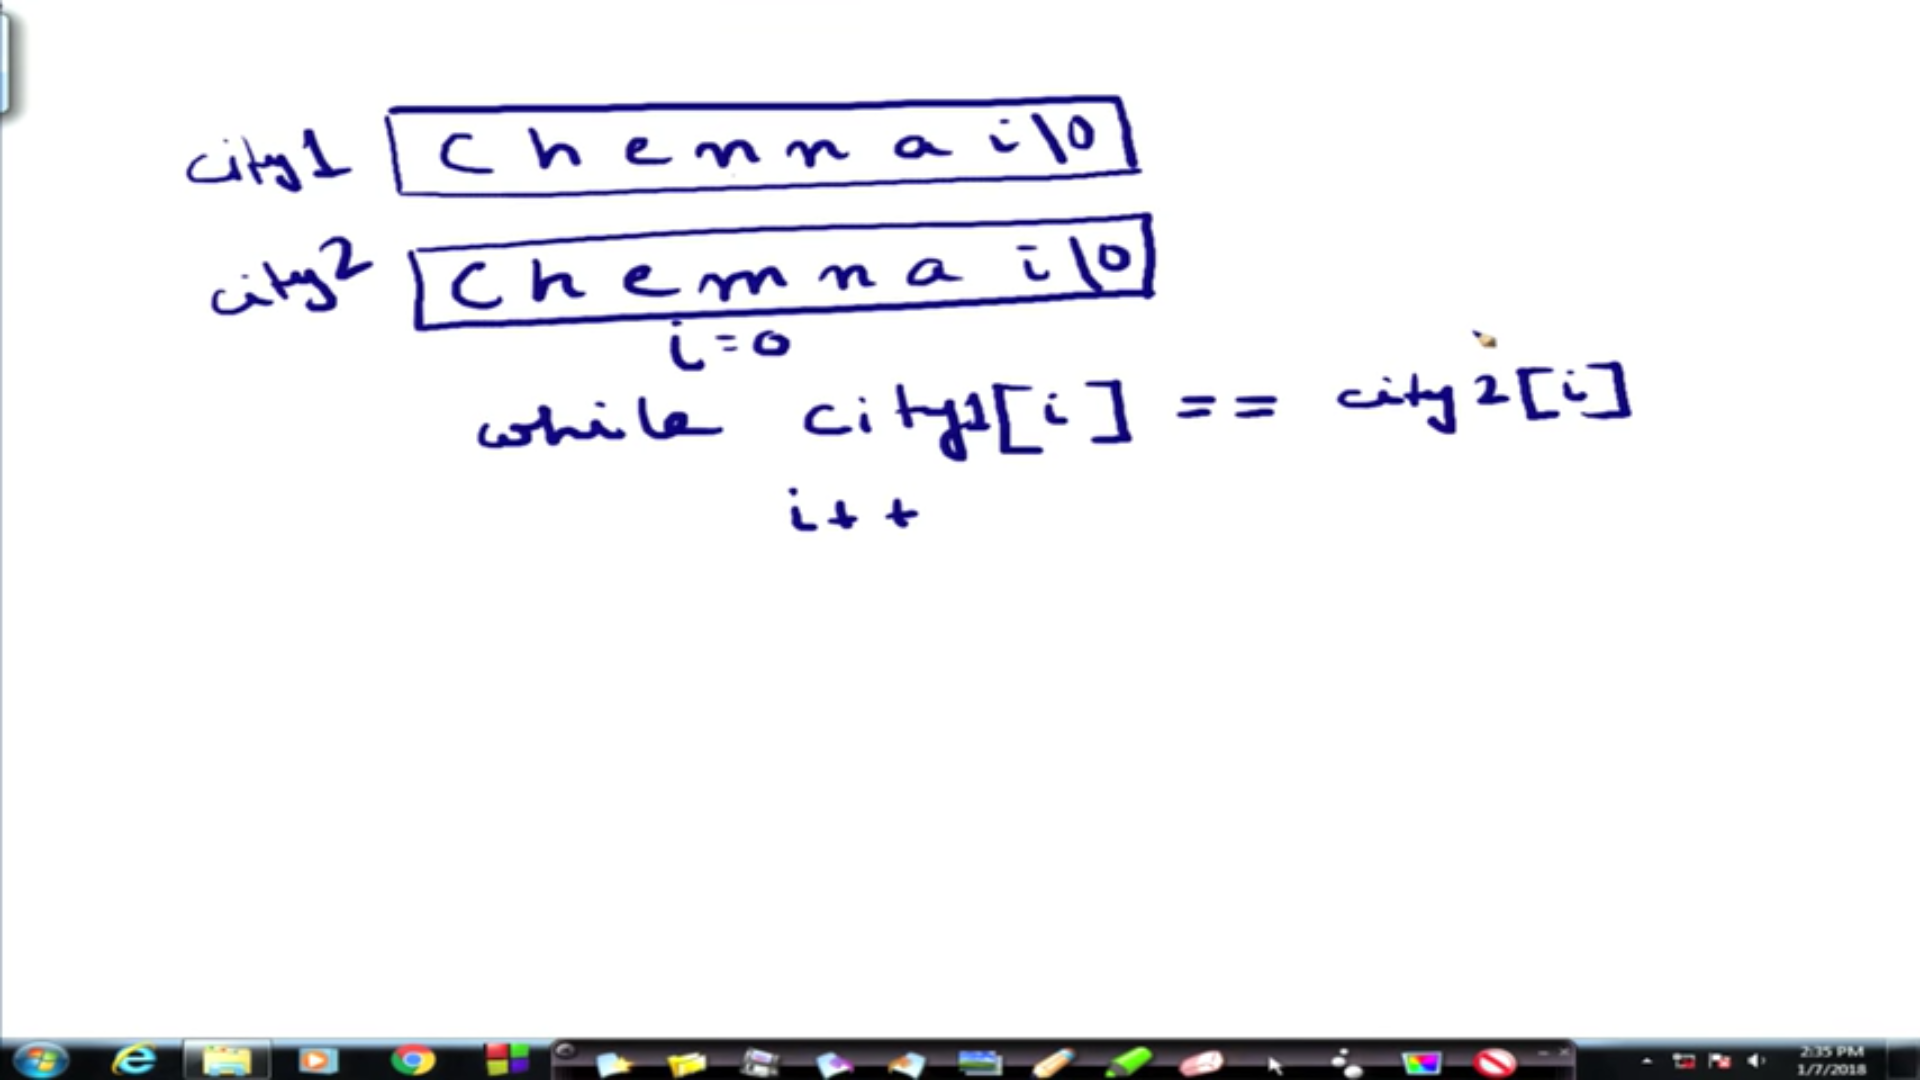 city1 C h e n n a i \0
city2 C h e m n a i \0
i = 0
while city1[i] == city2[i]
i++
2:35 PM
1/7/2018